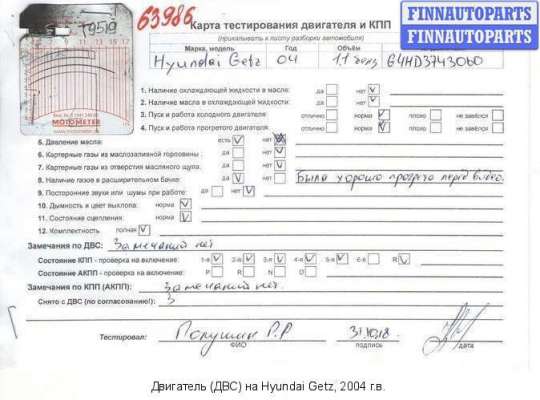 T9519
63986
FINNAUTOPARTS
FINNAUTOPARTS
Карта тестирования двигателя и КПП
(прикалывать к листу разборки автомобиля)
Марка, модель Год Объём
Hyundai Getz 04 1.1 бенз G4HD3743060
1. Наличие охлаждающей жидкости в масле: да нет
2. Наличие масла в охлаждающей жидкости: да нет
3. Пуск и работа холодного двигателя: отлично норма плохо не завёлся
4. Пуск и работа прогретого двигателя: отлично норма плохо не завёлся
5. Давление масла: есть нет
6. Картерные газы из маслозаливной горловины: да нет
7. Картерные газы из отверстия масляного щупа: да нет
8. Наличие газов в расширительном бачке: да нет Было хорошо прогрето перед видео.
9. Посторонние звуки или шумы при работе: да нет
10. Дымность и цвет выхлопа: норма
11. Состояние сцепления: норма
12. Комплектность полная
MOTOMETER
Замечания по ДВС: Замечаний нет
Состояние КПП - проверка на включение: 1-я 2-я 3-я 4-я 5-я 6-я R
Состояние АКПП - проверка на включение: P R N D
Замечания по КПП (АКПП): Замечаний нет.
Снято с ДВС (по согласованию!): 3
Тестировал: Р.Р 31.10.18
ФИО подпись дата
Двигатель (ДВС) на Hyundai Getz, 2004 г.в.